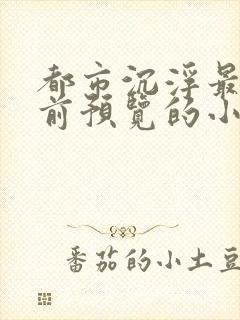 都市沉浮最
前预览的小
番茄的小土豆